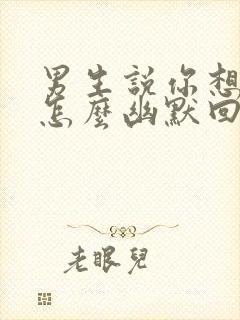 男生說你想
怎麼幽默回
老眼兒